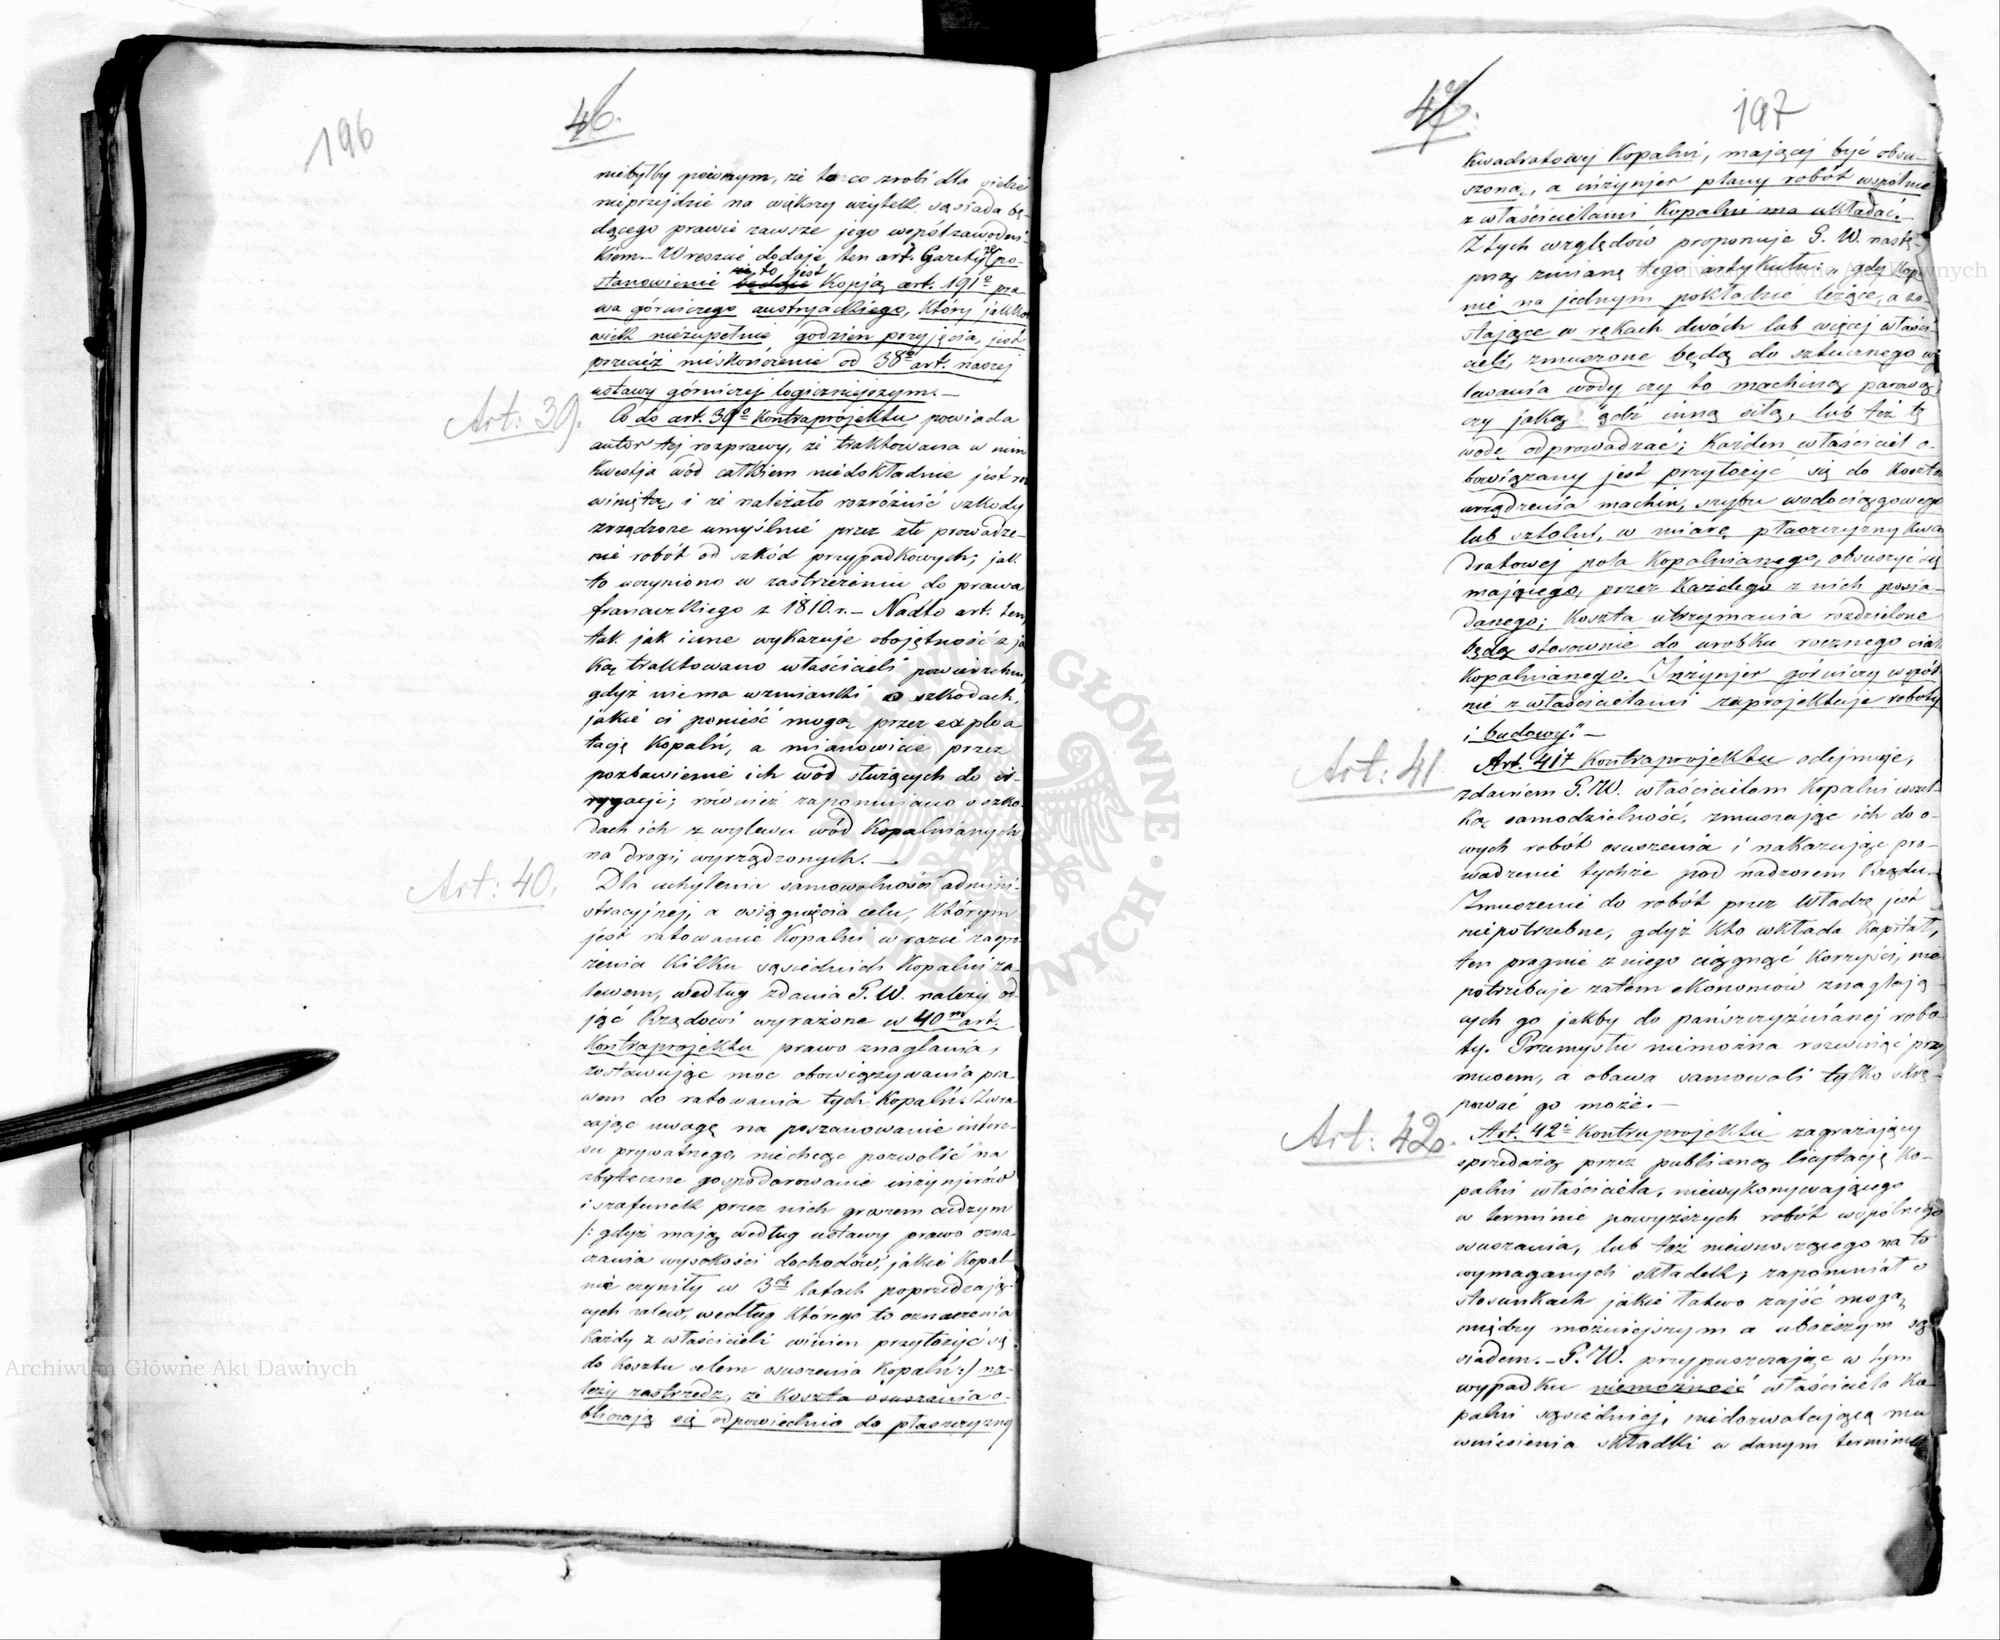 196
46.
niebyłby pewnym, że to co zrobi dla siebie
nieprzejdzie na większy użytek sąsiada bę-
dącego prawie zawsze jego współzawodni-
kiem. – Wreszcie dodaje ten art. Gazety, że po-
stanowienie to jest kopją art. 191º pra
wa górniczego austryackiego, który jakko
wiek niezupełnie godzien przyjęcia, jest
przecież nieskończenie od 38º art. naszej
ustawy górniczej logiczniejszym. –
Art: 39.
Co do art. 39º Kontraprojektu powiada
autor tej rozprawy, że traktowana w nim
kwestja wód całkiem niedokładnie jest ro
winięta, i że należało rozróżnić szkody
zrządzone umyślnie przez złe prowadze-
nie robót od szkód przypadkowych; jak
to uczyniono w zastrzeżeniu do prawa
francuzkiego z 1810. r. – Nadto art. ten,
tak jak inne wykazuje obojętność z ja
ką traktowano właścicieli powierzchni,
gdyż niema wzmianki o szkodach,
jakie ci ponieść mogą przez exploa
tację Kopalń, a mianowicie przez
pozbawienie ich wód służących do ir-
rygacji; również zapomniano o szko-
dach ich z wylewu wód Kopalnianych
na drogi, wyrządzonych. –
Art: 40.
Dla uchylenia samowolności admini-
stracyjnej, a osiągnięcia celu, którym
jest ratowanie Kopalń w razie zagro-
żenia kilku sąsiednich Kopalń za
lewem, według zdania P. W. należy od-
jąć Rządowi wyrażone w 40m art.
Kontraprojektu prawo znaglania,
zostawując moc obowiązywania pra-
wem do ratowania tych Kopalń. Zwra
cając uwagę na poszanowanie intere-
su prywatnego, niechcąc pozwolić na
zbyteczne gospodarowanie inżynjerów
i szafunek przez nich groszem cudzym
/: gdyż mają według ustawy prawo ozna-
czania wysokości dochodów, jakie Kopal-
nie czyniły w 3ch latach poprzedzają-
cych zalew, według którego to oznaczenia
każdy z właścicieli winien przyłożyć się
do kosztu celem osuszenia Kopalń :/ na-
leży zastrzedz, że koszta osuszania o-
bliczają się odpowiednio do płaszczyzny
197
47.
kwadratowej Kopalni, mającej być osu-
szoną, a inżynjer plany robót wspólnie
z właścicielami Kopalni ma układać. –
Z tych względów proponuje P. W. nastę-
pną zmianę tego artykułu: „gdy Kopal
nie na jednym pokładzie leżące, a zo-
stające w rękach dwóch lub więcej właści-
cieli, zmuszone będą do sztucznego wy
lewania wody czy to machiną parową,
czy jaką bądź inną siłą, lub też tę
wodę odprowadzać; każden właściciel o-
bowiązany jest przyłożyć się do kosztu
urządzenia machin, szybu wodociągowego
lub sztolni, w miarę płaszczyzny kwa
dratowej pola Kopalnianego, obsuszyć się
mającego, przez każdego z nich posia-
danego; koszta utrzymania rozdzielone
będą stosownie do urobku rocznego ciał
kopalnianego. Inżynjer górniczy wspól
nie z właścicielami zaprojektuje roboty
i budowy". –
Art: 41
Art. 41y Kontraprojektu odejmuje,
zdaniem P. W. właścicielom Kopalni wszel-
ką samodzielność, zmuszając ich do o-
wych robót osuszenia i nakazując pro-
wadzenie tychże pod nadzorem Rządu. –
Zmuszenie do robót przez Władzę jest
niepotrzebne, gdyż kto wkłada kapitał,
ten pragnie z niego ciągnąć korzyści, nie
potrzebuje zatem ekonomów znaglają-
cych go jakby do pańszczyźnianej robo-
ty. Przemysłu niemożna rozwinąć przy
musem, a obawa samowoli tylko skrę-
pować go może. –
Art: 42.
Art. 42y Kontraprojektu zagrażający
sprzedażą przez publiczną licytację Ko-
palni właściciela, niewykonywającego
w terminie powyższych robót wspólnego
osuszania, lub też niewnoszącego na to
wymaganych składek, zapomniał o
stosunkach jakie łatwo zajść mogą
między możniejszym a uboższym są-
siadem. – P. W. przypuszczając w tym
wypadku niemożność właściciela Ko-
palni sąsiedniej, niedozwalającą mu
wniesienia składki w danym terminie
Archiwum Główne Akt Dawnych
Archiwum Główne Akt Dawnych